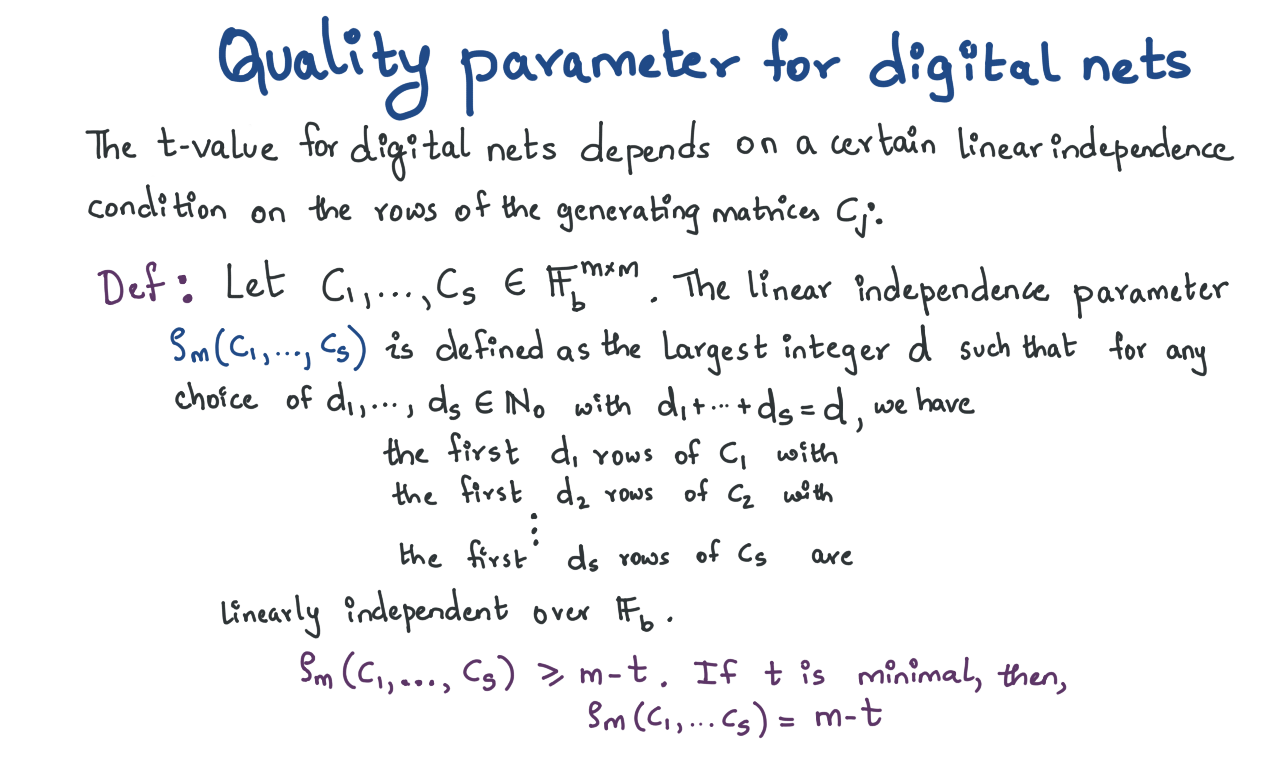 Quality parameter for digital nets
The t-value for digital nets depends on a certain linear independence
condition on the rows of the generating matrices Cⱼ.
Def: Let C₁,...,Cₛ ∈ 𝔽_b^{m×m}. The linear independence parameter
ρₘ(C₁,...,Cₛ) is defined as the largest integer d such that for any
choice of d₁,...,dₛ ∈ ℕ₀ with d₁+...+dₛ = d, we have
the first d₁ rows of C₁ with
the first d₂ rows of C₂ with
⋮
the first dₛ rows of Cₛ are
linearly independent over 𝔽_b.
ρₘ(C₁,..., Cₛ) ⩾ m-t. If t is minimal, then,
ρₘ(C₁,...Cₛ) = m-t